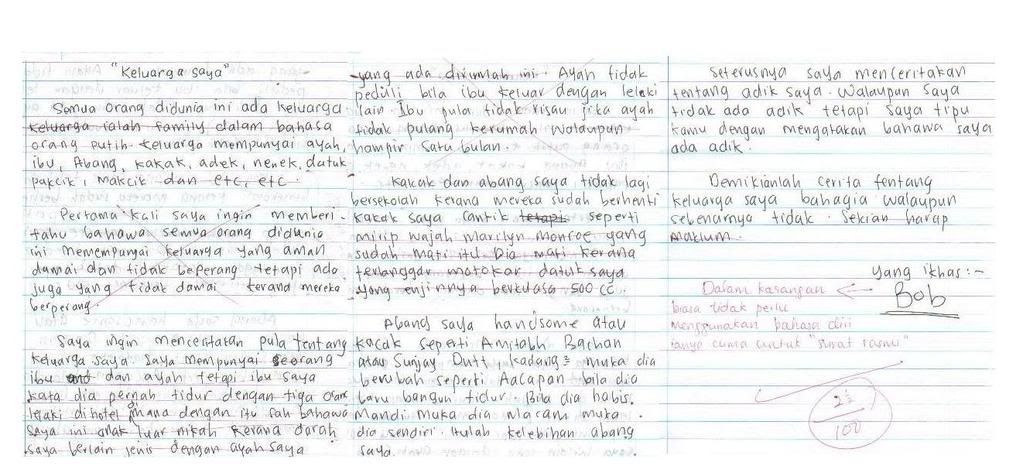 "Keluarga saya"
Semua orang didunia ini ada keluarga.
keluarga ialah family dalam bahasa
orang putih. keluarga mempunyai ayah,
ibu, Abang, kakak, adek, nenek, datuk
pakcik, makcik dan etc, etc.
Pertama kali saya ingin memberi-
tahu bahawa semua orang didunia
ini memempunyai keluarga yang aman
damai dan tidak beperang tetapi ada
juga yang tidak damai kerana mereka
berperang.
Saya ingin menceritakan pula tentang
keluarga saya. Saya mempunyai seorang
ibu dan ayah tetapi ibu saya
kata dia pernah tidur dengan tiga orang
lelaki dihotel mana dengan itu sah bahawa
saya ini anak luar nikah kerana darah
saya berlain jenis dengan ayah saya
yang ada dirumah ini. Ayah tidak
peduli bila ibu keluar dengan lelaki
lain. Ibu pula tidak risau jika ayah
tidak pulang kerumah walaupun
hampir satu bulan.
Kakak dan abang saya tidak lagi
bersekolah kerana mereka sudah berhenti
kakak saya cantik tetapi seperti
mirip wajah marilyn monroe yang
sudah mati itu. Dia mati kerana
terlanggar motokar datuk saya
yang enjinnya berkuasa 500 CC.
Abang saya handsome atau
kacak seperti Amitabh Bachan
atau Sunjay Dutt, kadang2 muka dia
berubah seperti Aacapan bila dia
baru bangun tidur. Bila dia habis
mandi muka dia macam muka
dia sendiri. Itulah kelebihan abang
saya.
Seterusnya saya menceritakan
tentang adik saya. Walaupun saya
tidak ada adik tetapi saya tipu
kamu dengan mengatakan bahawa saya
ada adik.
Demikianlah cerita tentang
keluarga saya bahagia walaupun
sebenarnya tidak. Sekian harap
maklum.
Yang ikhas:-
Bob
Dalam karangan
biasa tidak perlu
menggunakan bahasa diri
ianya cuma untuk "surat rasmi"
100